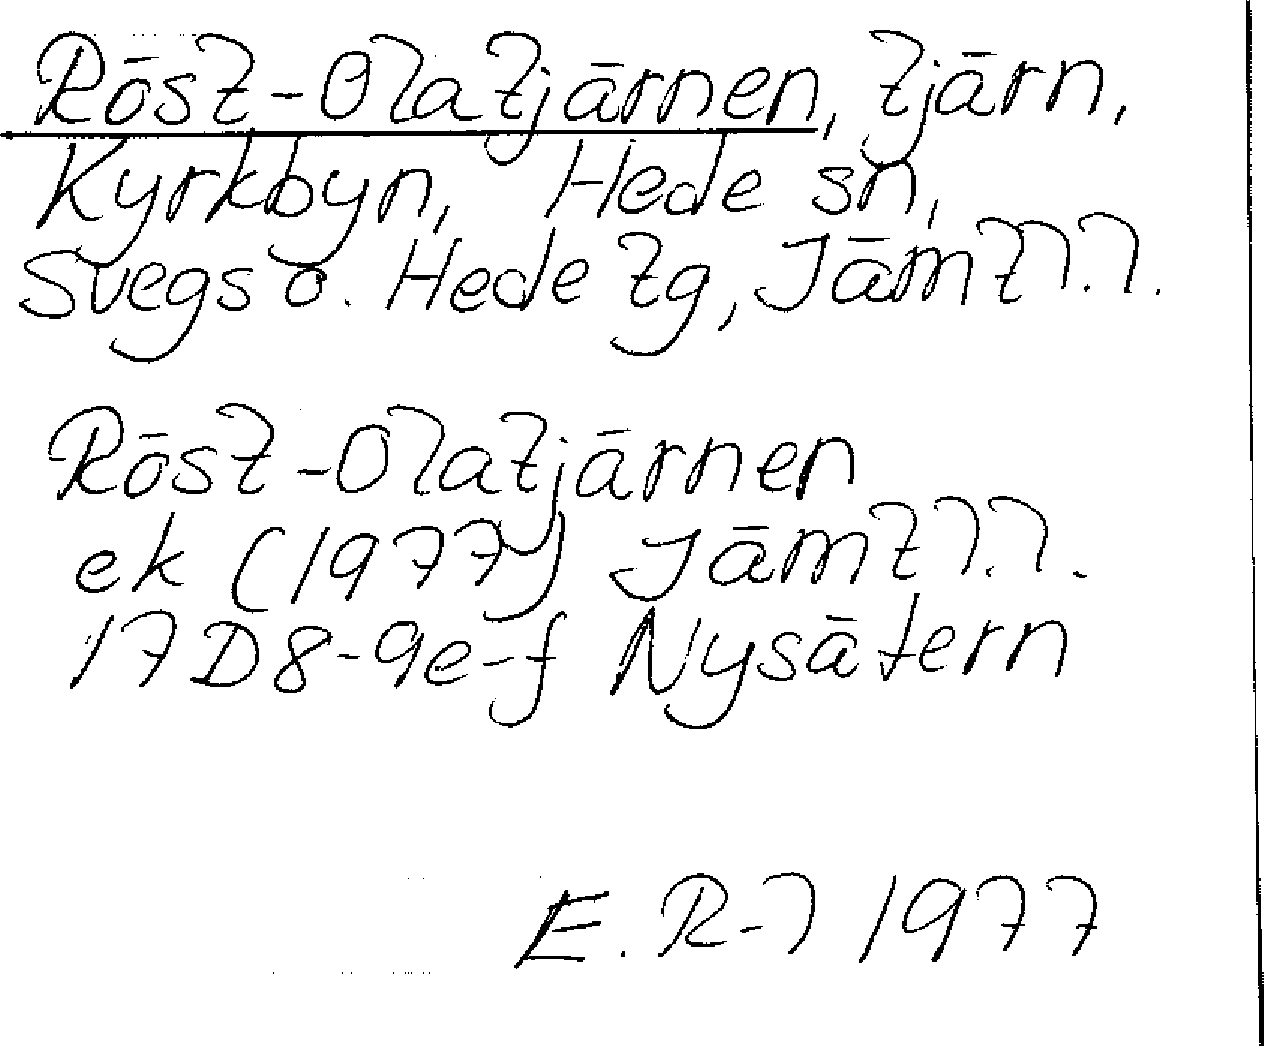 Röst-Olatjärnen, tjärn,
Kyrkbyn, Hede sn,
Svegs o. Hede tg, Jämtl.l.
Röst-Olatjärnen
ek (1977) Jämtl.l.
17D8-9e-f Nysätern
E. R-l 1977